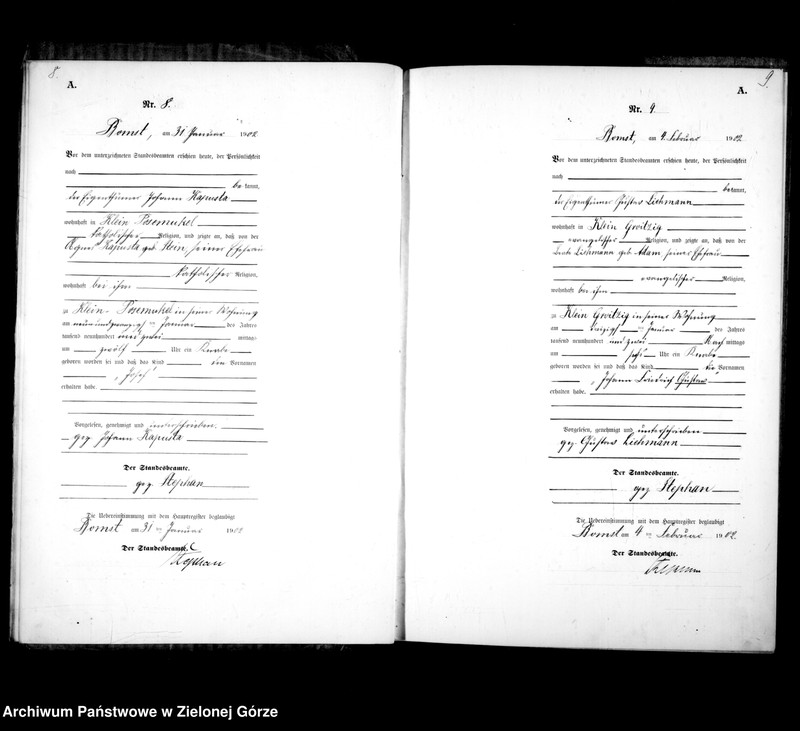 8.
A.
Nr. 8.
Bomst, am 31 Januar 1902
Vor dem unterzeichneten Standesbeamten erschien heute, der Persönlichkeit
nach
bekannt,
der Eigenthümer Johann Kapusta
wohnhaft in Klein Posemukel
katholischer Religion, und zeigte an, daß von der
Agnes Kapusta geb. seiner Ehefrau
katholischer Religion,
wohnhaft bei ihm
zu Klein-Posemukel in seiner Wohnung
am neunundzwanzigsten Januar des Jahres
tausend neunhundert und zwei mittags
um zwölf Uhr ein Knabe
geboren worden sei und daß das Kind den Vornamen
„Josef“
erhalten habe.
Vorgelesen, genehmigt und unterschrieben.
gez. Johann Kapusta
Der Standesbeamte.
gez. Stephan
Die Uebereinstimmung mit dem Hauptregister beglaubigt
Bomst am 31 ten Januar 1902
Der Standesbeamte.
Stephan
9.
A.
Nr. 9.
Bomst, am 4. Februar 1902
Vor dem unterzeichneten Standesbeamten erschien heute, der Persönlichkeit
nach
bekannt,
der Eigenthümer Gustav Liehmann
wohnhaft in Klein Groitzig
evangelischer Religion, und zeigte an, daß von der
Liehmann geb. Adam seiner Ehefrau
evangelischer Religion,
wohnhaft bei ihm
zu Klein Groitzig in seiner Wohnung
am Januar des Jahres
tausend neunhundert und zwei Nachmittags
um sechs Uhr ein Knabe
geboren worden sei und daß das Kind die Vornamen
„Johann Friedrich Gustav“
erhalten habe.
Vorgelesen, genehmigt und unterschrieben
gez. Gustav Liehmann
Der Standesbeamte.
gez Stephan
Die Uebereinstimmung mit dem Hauptregister beglaubigt
Bomst am 4 ten Februar 1902.
Der Standesbeamte.
Stephan
Archiwum Państwowe w Zielonej Górze